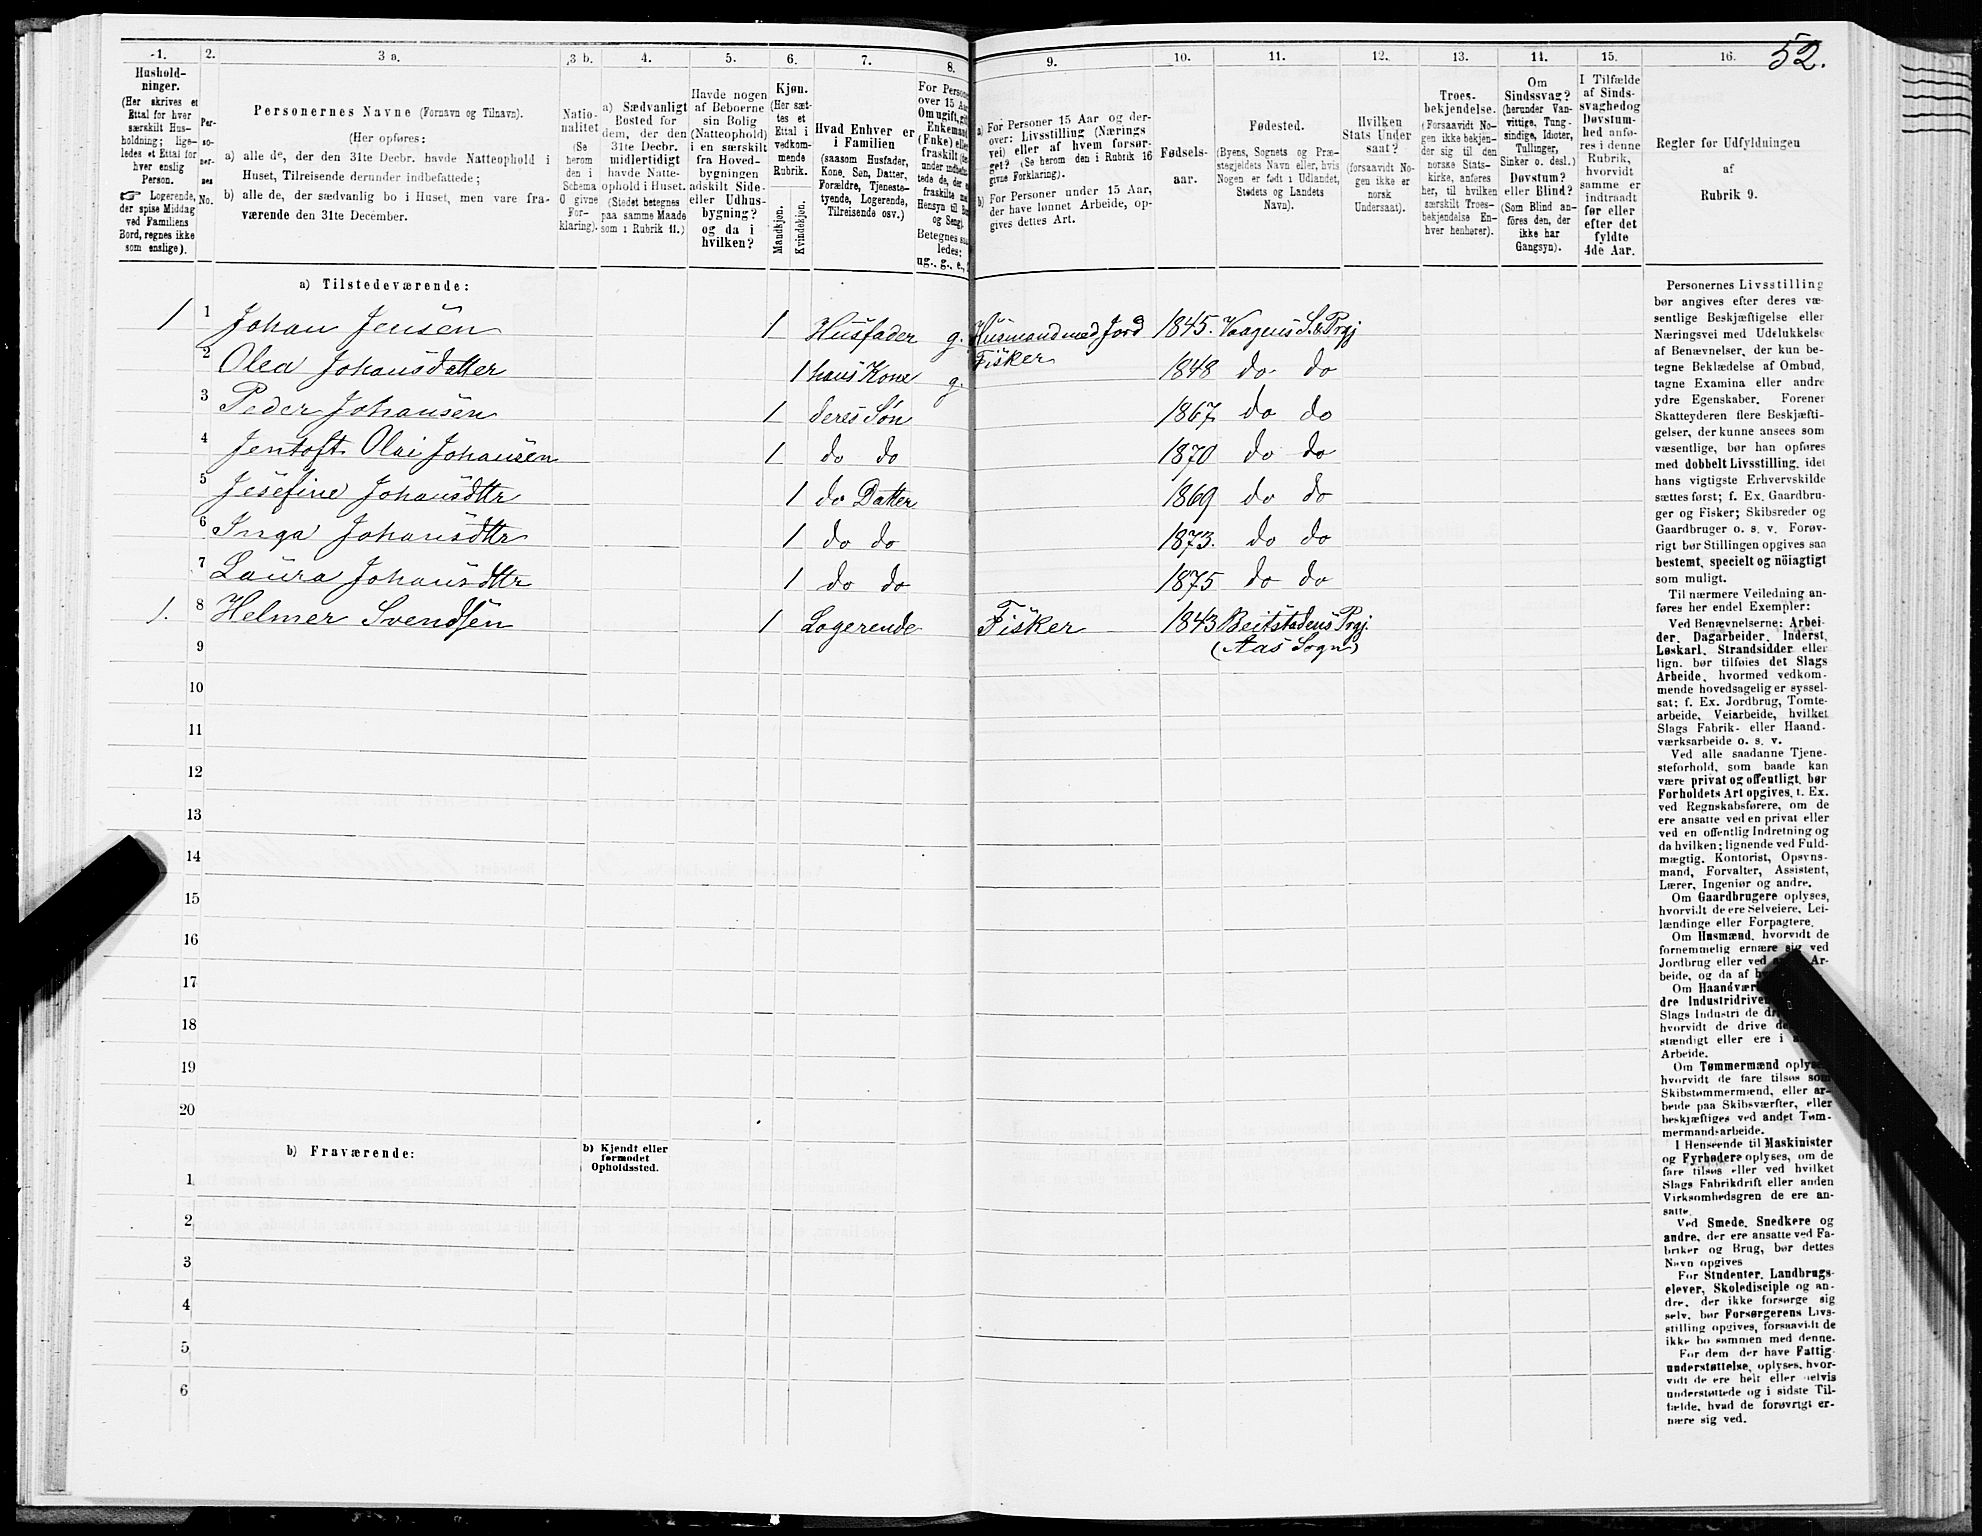 52.
1. 2. 3 a. 3 b. 4. 5. 6. 7. 8. 9. 10. 11. 12. 13. 14. 15. 16.
Hushold-
ninger.
(Her skrives et
Ettal for hver
særskilt Hus-
holdning; lige-
ledes et Ettal for
hver enslig
Person.
☞ Logerende,
der spise Middag
ved Familiens
Bord, regnes ikke
som enslige).
Per-
so-
ner-
nes
No.
Personernes Navne (Fornavn og Tilnavn).
(Her opføres:
a) alle de, der den 31te Decbr. havde Natteophold i
Huset, Tilreisende derunder indbefattede;
b) alle de, der sædvanlig bo i Huset, men vare fra-
værende den 31te December.
Natio-
nalitet
(Se
herom
den i
Schema
O givne
For-
klaring).
a) Sædvanligt
Bosted for
dem, der den
31te Decbr.
midlertidigt
havde Natte-
ophold i Huset.
(Stedet betegnes
paa samme Maade
som i Rubrik 11.)
Havde nogen
af Beboerne
sin Bolig
(Natteophold)
i en særskilt
fra Hoved-
bygningen
adskilt Side-
eller Udhus-
bygning?
og da i
hvilken?
Kjøn.
(Her sæt-
tes et
Ettal i
vedkom-
mende
Rubrik.
Mandkjøn.
Kvindekjøn.
Hvad Enhver er
i Familien
(saasom Husfader,
Kone, Søn, Datter,
Forældre, Tjeneste-
tyende, Logerende,
Tilreisende osv.)
For Person
over 15 Aar
Om ugift, gift
Enkemand
(Enke) eller
fraskilt
Betegnes saa
ledes:
ug., g., e.,
a) For Personer 15 Aar og der-
over: Livsstilling (Nærings
vei) eller af hvem forsør-
get? (Se herom den i Rubrik 16
givne Forklaring).
b) For Personer under 15 Aar,
der have lønnet Arbeide, op-
gives dettes Art.
Fødsels-
aar.
Fødested.
(Byens, Sognets og Præ-
stegjeldets Navn eller, hvis
Nogen er født i Udlandet,
Stedets og Landets
Navn).
Hvilken
Stats Under
saat?
(forsaavidt No-
gen ikke er
norsk
Undersaat).
Troes-
bekjendelse.
(Forsaavidt No-
gen ikke bekjen-
der sig til den
norske Stats-
kirke, anføres
her, til hvilken
særskilt Troes-
bekjendelse En-
hver henhører).
Om
Sindssvag?
(herunder Van-
vittige, Tung-
sindige, Idioter,
Tullinger,
Sinker o. desl.)
Døvstum?
eller Blind?
(Som Blind an-
føres den, der
ikke har
Gangsyn).
I Tilfælde
af Sinds-
svaghed og
Døvstum-
hed anfø-
res i denne
Rubrik,
hvorvidt
samme er
indtraadt
før eller
efter det
fyldte
4de Aar.
Regler for Udfyldningen
af
Rubrik 9.
a) Tilstedeværende:
1 1 Johan Jensen 1 Husfader g. Husmand med Jord 1845. Vaagens S. & Prgj
Fisker
2 Olea Johansdatter 1 hans Kone g. 1848 do do
3 Peder Johansen 1 deres Søn 1867 do do
4 Jentoft Olai Johansen 1 do do 1870 do do
5 Jesefine Johansdttr 1 do Datter 1869 do do
6 Inga Johansdttr 1 do do 1873. do do
7 Laura Johansdttr 1 do do 1875 do do
1. 8 Helmer Svendsen 1 Logerende Fisker 1843 Beitstadens Prgj.
(Aas Sogn)
9
10
11
12
13
14
15
16
17
18
19
20
b) Fraværende:
b) Kjendt eller
formodet
Opholdssted.
1
2
3
4
5
6
Personernes Livsstilling
bør angives efter deres væ-
sentlige Beskjæftigelse eller
Næringsvei med Udelukkelse
af Benævnelser, der kun be-
tegne Beklædelse af Ombud,
tagne Examina eller andre
ydre Egenskaber. Forener
Skatteyderen flere Beskjæfti-
gelser, der kunne ansees som
væsentlige, bør han opføres
med dobbelt Livsstilling, idet
hans vigtigste Erhvervskilde
sættes først; f. Ex. Gaardbru-
ger og Fisker; Skibsreder og
Gaardbruger o. s. v. Forøv-
rigt bør Stillingen opgives saa
bestemt, specielt og nöiagtigt
som muligt.
Til nærmere Veiledning an-
føres her endel Exempler:
Ved Benævnelserne: Arbei-
der, Dagarbeider, Inderst,
Løskarl, Strandsidder eller
lign. bør tilføies det Slags
Arbeide, hvormed vedkom-
mende hovedsagelig er syssel-
sat; f. Ex. Jordbrug, Tomte-
arbeide, Veiarbeide, hvilket
Slags Fabrik- eller Haand-
værksarbeide o. s. v.
Ved alle saadanne Tjene-
steforhold, som baade kan
være privat og offentligt, bør
Forholdets Art opgives, t. Ex.
ved Regnskabsførere, om de
ere ansatte ved en privat eller
ved en offentlig Indretning og
da hvilken; lignende ved Fuld-
mægtig, Kontorist, Opsyns-
mand, Forvalter, Assistent,
Lærer, Ingeniør og andre.
Om Gaardbrugere oplyses,
hvorvidt de ere Selveiere, Lei-
lændinge eller Forpagtere.
Om Husmænd, hvorvidt de
fornemmelig ernære sig ved
Jordbrug eller ved Ar-
beide, og da af
Om Haandvær
dre Industridrive
Slags Industri de
hvorvidt de drive
stændigt eller ere i
Arbeide.
Om Tømmermænd oplyses
hvorvidt de fare tilsøs som
Skibstømmermænd, eller ar-
beide paa Skibsværfter, eller
beskjæftiges ved andet Tøm-
mermandsarbeide.
I Henseende til Maskinister
og Fyrbødere oplyses, om de
fare tilsøs eller ved hvilket
Slags Fabrikdrift eller anden
Virksomhedsgren de ere an-
satte.
Ved Smede, Snedkere og
andre, der ere ansatte ved Fa-
briker og Brug, bør dettes
Navn opgives
For Studenter, Landbrugs-
elever, Skoledisciple og an-
dre, der ikke forsørge sig
selv, bør Forsørgerens Livs-
stilling opgives, forsaavidt de
ikke bo sammen med denne.
For dem der have Fattig-
understøttelse, oplyses, hvor-
vidt de ere helt eller delvis
understøttede og i sidste Til-
fælde, hvad de forøvrigt er-
nære sig ved.